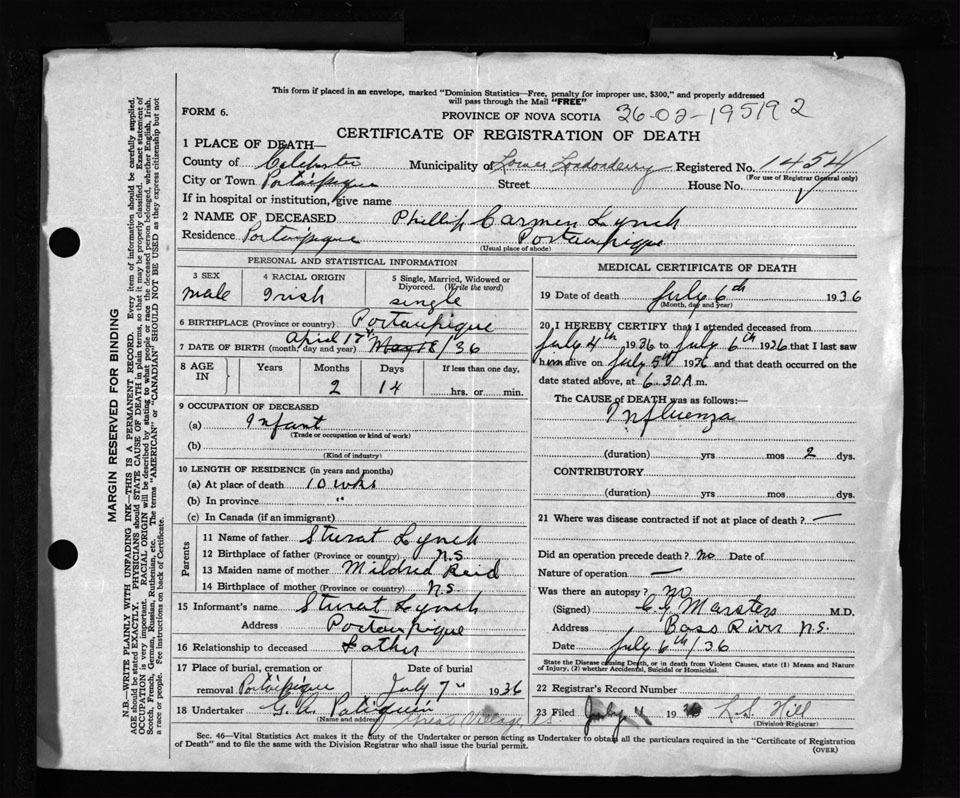 This form if placed in an envelope, marked "Dominion Statistics—Free, penalty for improper use, $300," and properly addressed
will pass through the Mail "FREE"
FORM 6.
PROVINCE OF NOVA SCOTIA 36-02-195192
CERTIFICATE OF REGISTRATION OF DEATH
1 PLACE OF DEATH—
County of Colchester Municipality of Lower Londonderry Registered No. 1454
(For use of Registrar General only)
City or Town Portaipique Street House No.
If in hospital or institution, give name
2 NAME OF DECEASED Phillip Carmen Lynch
Residence Portaipique Portaupique
(Usual place of abode)
PERSONAL AND STATISTICAL INFORMATION
3 SEX male
4 RACIAL ORIGIN Irish
5 Single, Married, Widowed or Divorced. (Write the word) single
6 BIRTHPLACE (Province or country) Portaupique
April 17th
7 DATE OF BIRTH (month, day and year) May 18/36
8 AGE IN Years Months 2 Days 14 If less than one day, hrs. or min.
9 OCCUPATION OF DECEASED
(a) Infant
(Trade or occupation or kind of work)
(b)
(Kind of industry)
10 LENGTH OF RESIDENCE (in years and months)
(a) At place of death 10 wks
(b) In province "
(c) In Canada (if an immigrant)
Parents
11 Name of father Sturat Lynch
12 Birthplace of father (Province or country) N.S.
13 Maiden name of mother Mildred Reid
14 Birthplace of mother (Province or country) N.S.
15 Informant's name Sturat Lynch
Address Portaupique
16 Relationship to deceased Father
17 Place of burial, cremation or removal Portaipique
Date of burial July 7" 1936
18 Undertaker G. A. Patriquin
(Name and address) Great Village N.S.
MEDICAL CERTIFICATE OF DEATH
19 Date of death July 6th 1936
(Month, day and year)
20 I HEREBY CERTIFY that I attended deceased from
July 4th 1936 to July 6th 1936 that I last saw
him alive on July 5th 1936 and that death occurred on the
date stated above, at 6.30 A m.
The CAUSE of DEATH was as follows:—
Influenza
(duration) yrs mos 2 dys.
CONTRIBUTORY
(duration) yrs mos dys.
21 Where was disease contracted if not at place of death? —
Did an operation precede death? no Date of
Nature of operation —
Was there an autopsy? no
(Signed) M.D.
Address Bass River N.S.
Date July 6th/36
State the Disease causing Death, or in death from Violent Causes, state (1) Means and Nature
of Injury, (2) whether Accidental, Suicidal or Homicidal.
22 Registrar's Record Number
23 Filed July 1936 L.S. Hill
(Division Registrar)
Sec. 46—Vital Statistics Act makes it the duty of the Undertaker or person acting as Undertaker to obtain all the particulars required in the "Certificate of Registration
of Death" and to file the same with the Division Registrar who shall issue the burial permit.
(OVER)
MARGIN RESERVED FOR BINDING
N.B.—WRITE PLAINLY WITH UNFADING INK—THIS IS A PERMANENT RECORD. Every item of information should be carefully supplied.
AGE should be stated EXACTLY. PHYSICIANS should STATE CAUSE OF DEATH in plain terms, so that it may be properly classified. Exact statement of
OCCUPATION is very important. RACIAL ORIGIN will be described by stating to what people or race the deceased person belonged, whether English, Irish,
Scotch, French, German, Russian, Ruthenian, etc. The terms "AMERICAN" or "CANADIAN" SHOULD NOT BE USED as they express citizenship but not
a race or people. Fee instructions on back of Certificate.